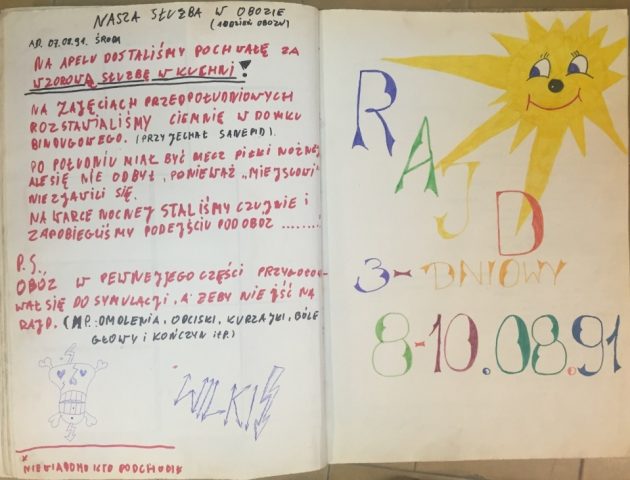 NASZA SŁUŻBA W OBOZIE
(1 DZIEŃ OBOZU)
AD. 07.08.91. ŚRODA
NA APELU DOSTALIŚMY POCHWAŁĘ ZA
WZOROWĄ SŁUŻBĘ W KUCHNI!
NA ZAJĘCIACH PRZEDPOŁUDNIOWYCH
ROZSTAWIALIŚMY CIEMNIĘ W DOMKU
BINDUGOWEGO. (PRZYJECHAŁ SANEPID).
PO POŁUDNIU MIAŁ BYĆ MECZ PIŁKI NOŻNEJ
ALE SIĘ NIE ODBYŁ, PONIEWAŻ „MIEJSCOWI"
NIE ZJAWILI SIĘ.
NA WARCE NOCNEJ STALIŚMY CZUJNIE I
ZAPOBIEGLIŚMY PODEJŚCIU POD OBÓZ ........
P.S.
OBÓZ W PEWNEJ JEGO CZĘŚCI PRZYGOTOWY-
WAŁ SIĘ DO SYMULACJI, A ŻEBY NIE IŚĆ NA
RAJD. (NP. OMDLENIA, ODCISKI, KURZAJKI, BÓLE
GŁOWY I KOŃCZYN ITP.)
WILKI
* NIEWIADOMO KTO PODCHODZIŁ
RAJD
3-DNIOWY
8-10.08.91